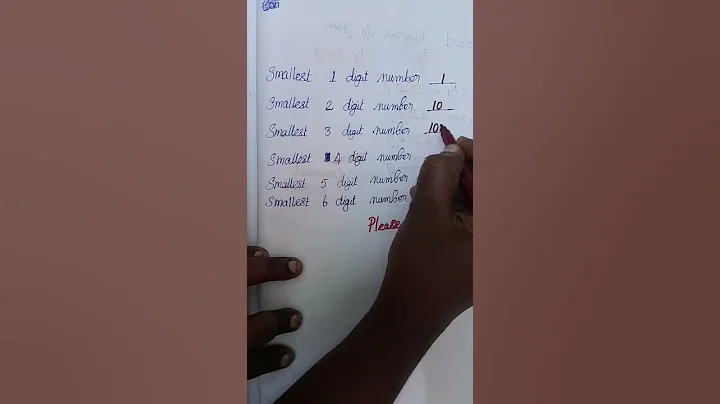 Smallest 1 digit number 1
Smallest 2 digit number 10
Smallest 3 digit number 10
Smallest 4 digit number
Smallest 5 digit number
Smallest 6 digit number
Please